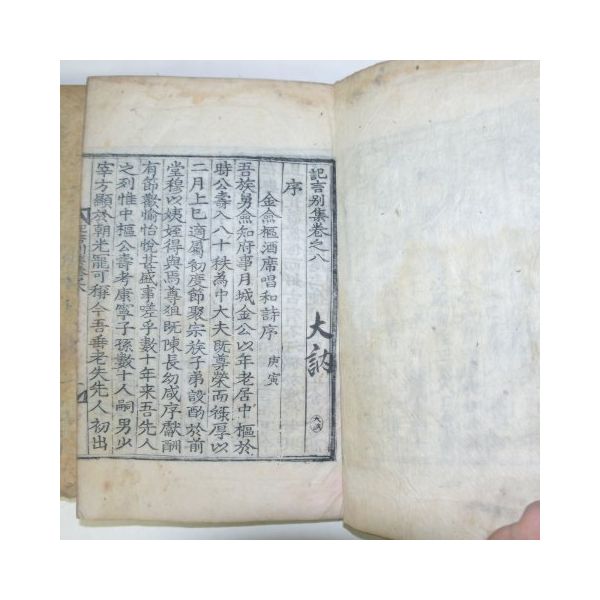 記言別集卷之八
大訥
序
金僉樞酒席唱和詩序 庚寅
吾族舅僉知府事月城金公以年老居中樞於
時公壽入八十秩為中大夫既尊榮而祿厚以
二月上巳適屬初度節聚宗族子弟設酌於前
堂穆以姨姪得與焉尊狙既陳長幼咸序獻酬
有節歡愉怡悅甚盛事嗟乎數十年来吾先人
之列惟中樞公壽考康寧子孫數十人嗣男少
宰方顯於朝光寵可稱今吾垂老失先人初出